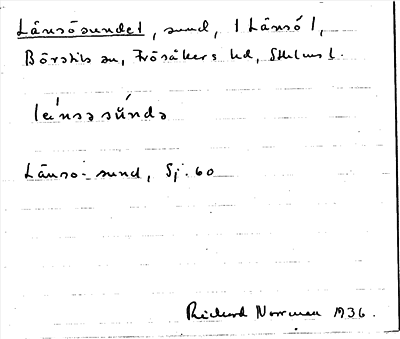 Länsösundet, sund, 1 Länsö 1,
Börstils sn, Frösåkers hd, Sthlms l.
Länsö-sund, Sj. 60
Rickard Norrman 1936.